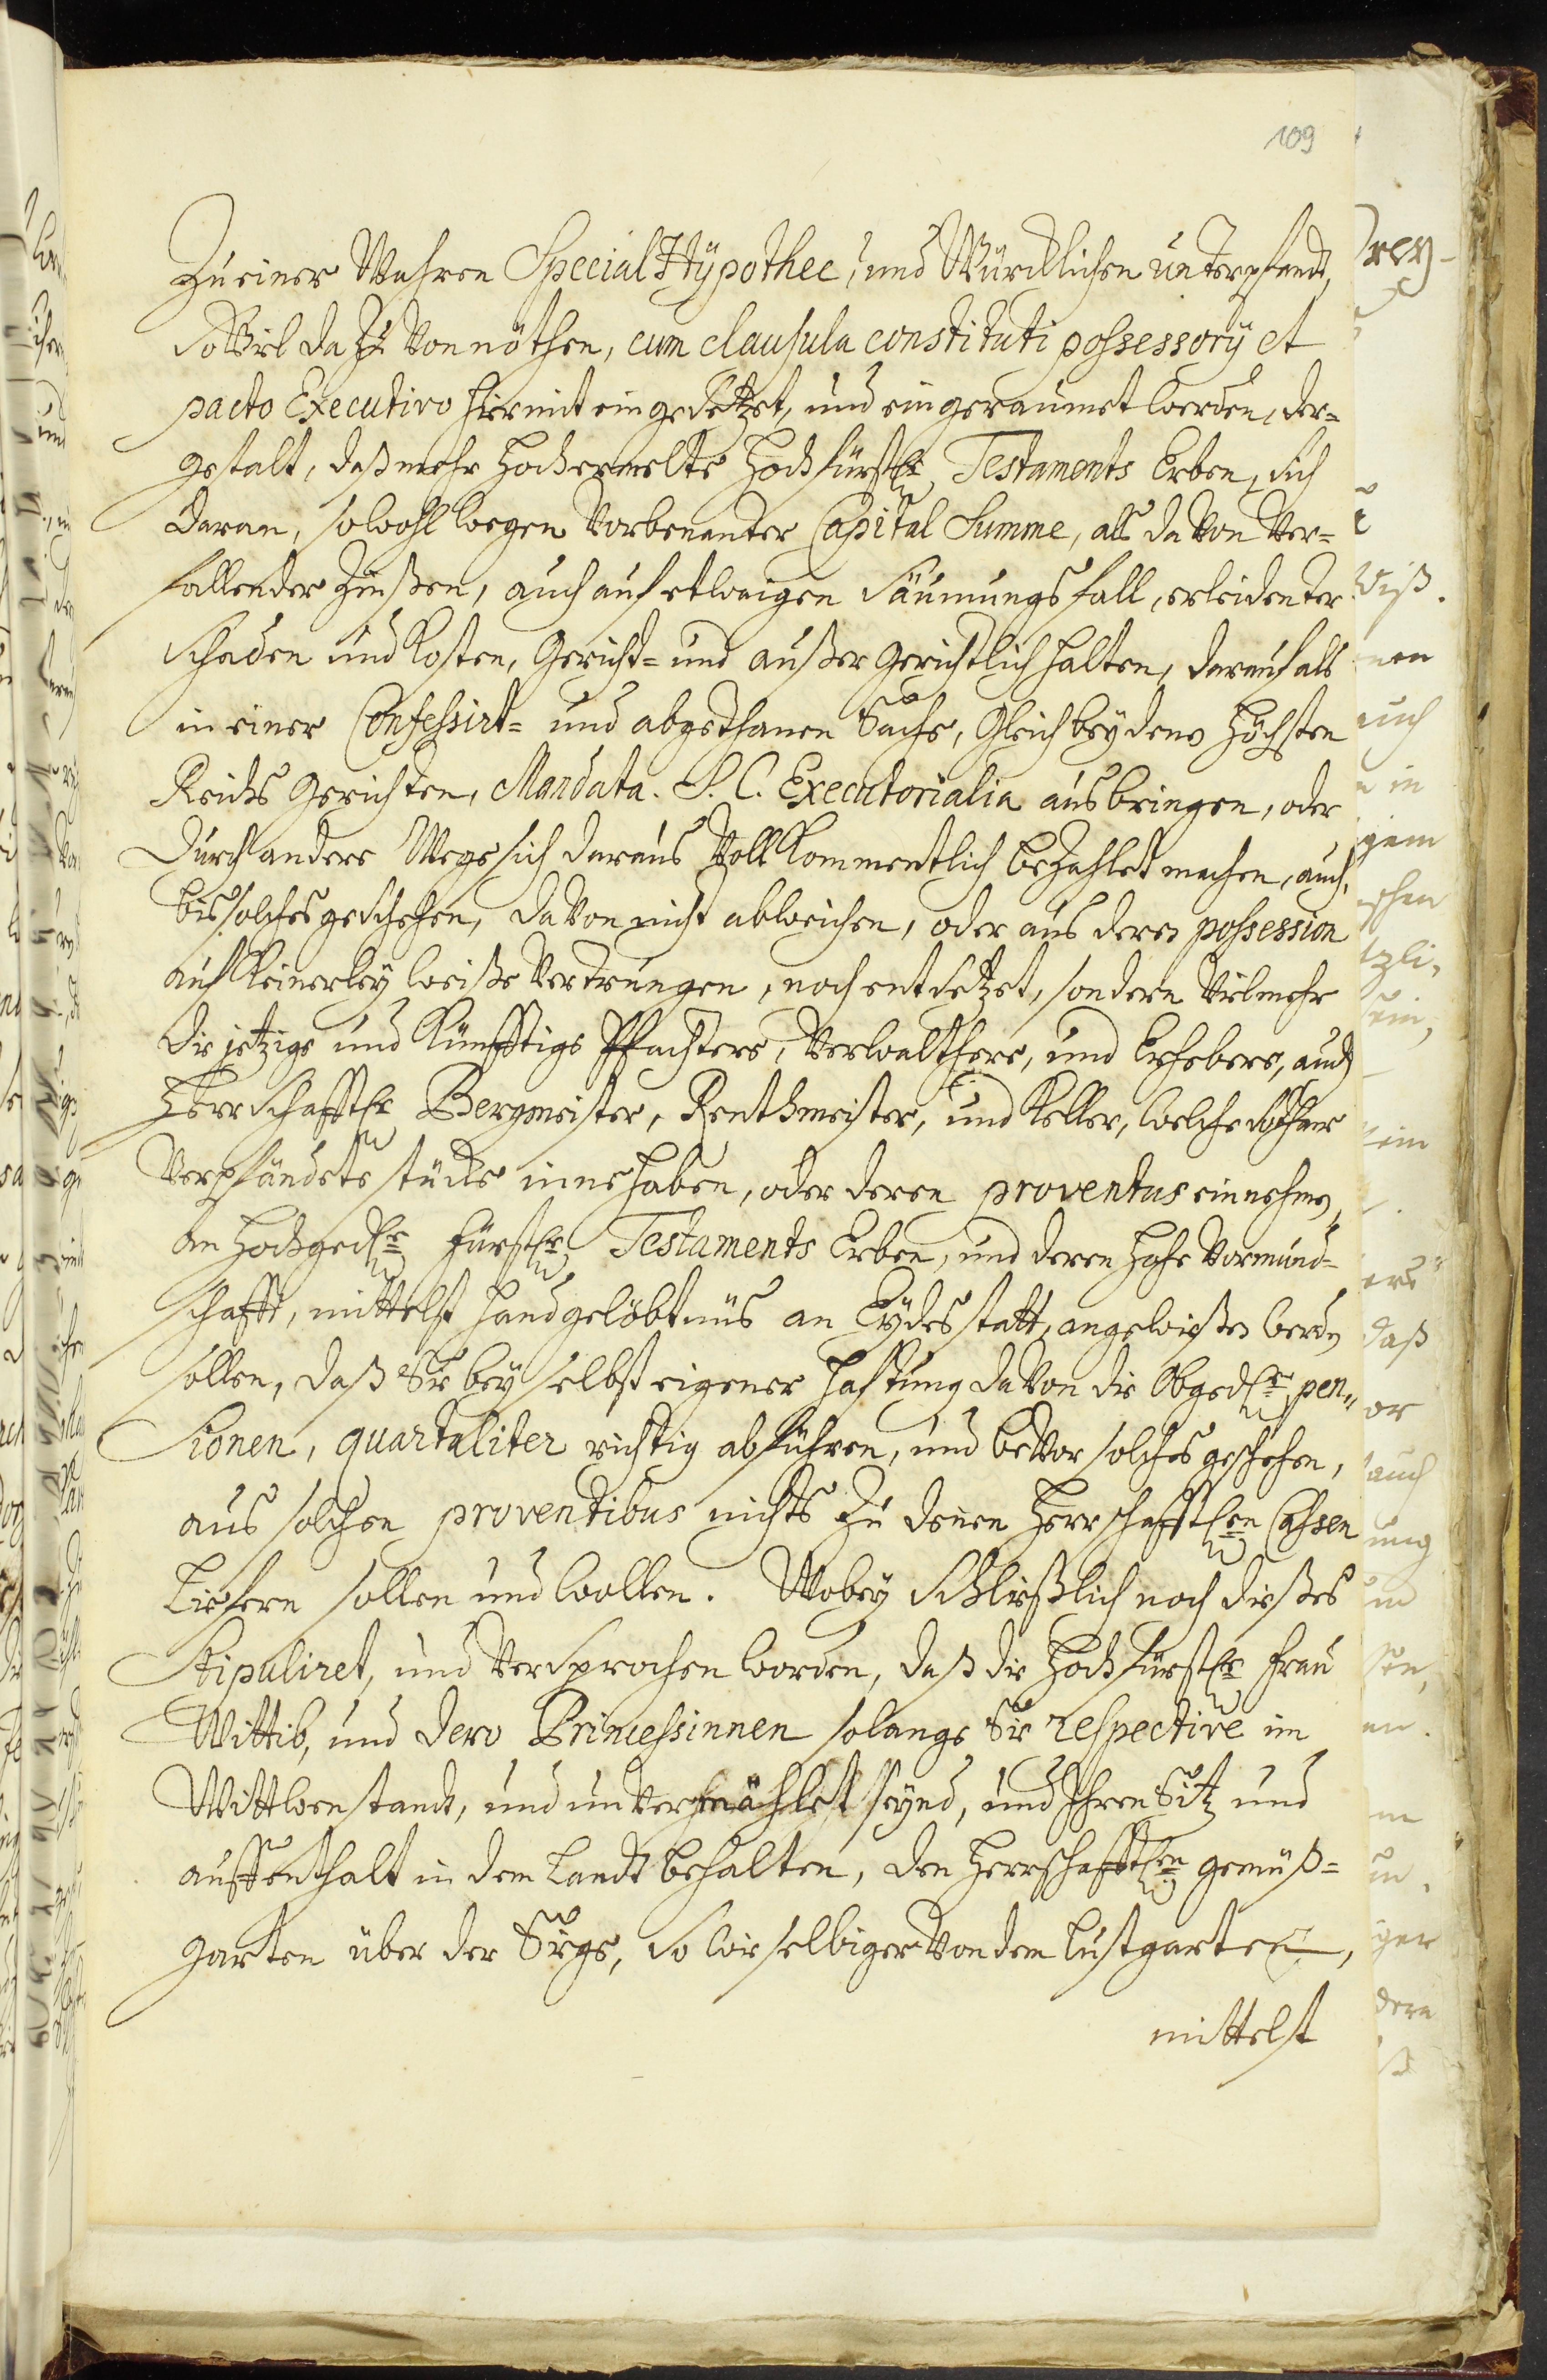 109
Zu einer Wahren Special Hÿpothec, und Würcklichen unterpfandt,
So Viel da Zu Vonnöthen, cum clausula constituti possessorÿ et
pacto Executivo hiermit eingesetzet, und eingeraumet werden, der=
gestalt, daß mehr hochermelte Hochfürstle Testaments Erben, sich
daran, sowohl wegen Vorbenanter Capital Summe, alß da Von Ver=
fallender Zinßen, auch auf etwaigen Säumungs fall, erleidenter
Schaden und Kosten, Gericht= und außer gerichtlich halten, darauf als
in einer Confessirt= und abgethanen Sache, Gleich beÿ denen Höchsten
Reichs Gerichten, Mandata. S. C. Executorialia ausbringen, oder
Durch andere Wege sich daraus Vollkommentlich bezahlet machen, auch,
bis solches geschehen, da Von nicht abweichen, oder aus deren possession
auf keinerleÿ weiße Vertrungen, noch entsetzet, sondern Vielmehr
die jetzige und künfftige Pfachtere, Verwalthere, und Erhebere, auch
Herrschafftle Bergmeister, Renthmeister, und Keller, welche solche
Verpfändete stücke inne haben, oder deren proventus einnehmen,
an Hochgedle Fürstle Testaments Erben, und deren Hohe Vormund=
schafft, mittelst handgelöbtnüs an Eÿdes statt, angewießen werden
sollen, daß Sie beÿ selbst eigener hafftung da Von die Obgedle pen=
sionen, quartaliter richtig abführen, und beVor solches geschehen,
aus solchen proventibus nichts zu denen Herrschafftlen Cassen
Liefern sollen und wollen. Wobeÿ Schließlich noch dießes
Stipuliret, und Versprochen worden, daß die Hochfürstle Frau
Wittib, und dero Princessinnen solange Sie respective im
Wittwenstandt, und unvermählet seÿnd, und Ihren Sitz und
auffenthalt in dem Landt behalten, den Herrschafftlen gemüß=
garten über der Siege, so wie selbiger Von dem Lustgarten,
mittelst